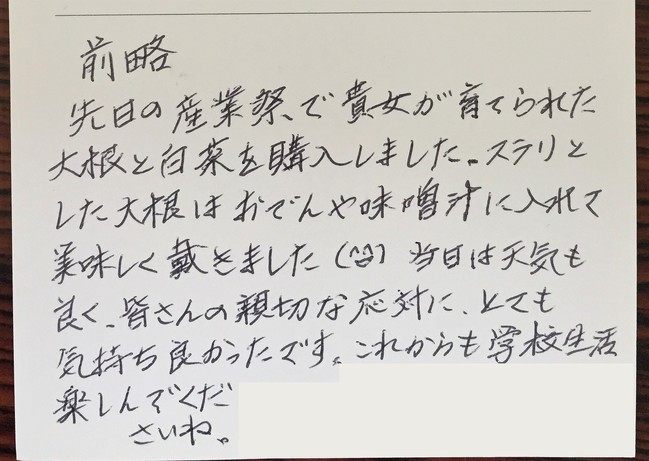 前略
先日の産業祭、で貴女が育てられた
大根と白菜を購入しました。スラリと
した大根はおでんや味噌汁に入れて
美味しく戴きました(^^)当日は天気も
良く、皆さんの親切な応対に、とても
気持ち良かったです。これからも学校生活
楽しんでくだ
さいね。